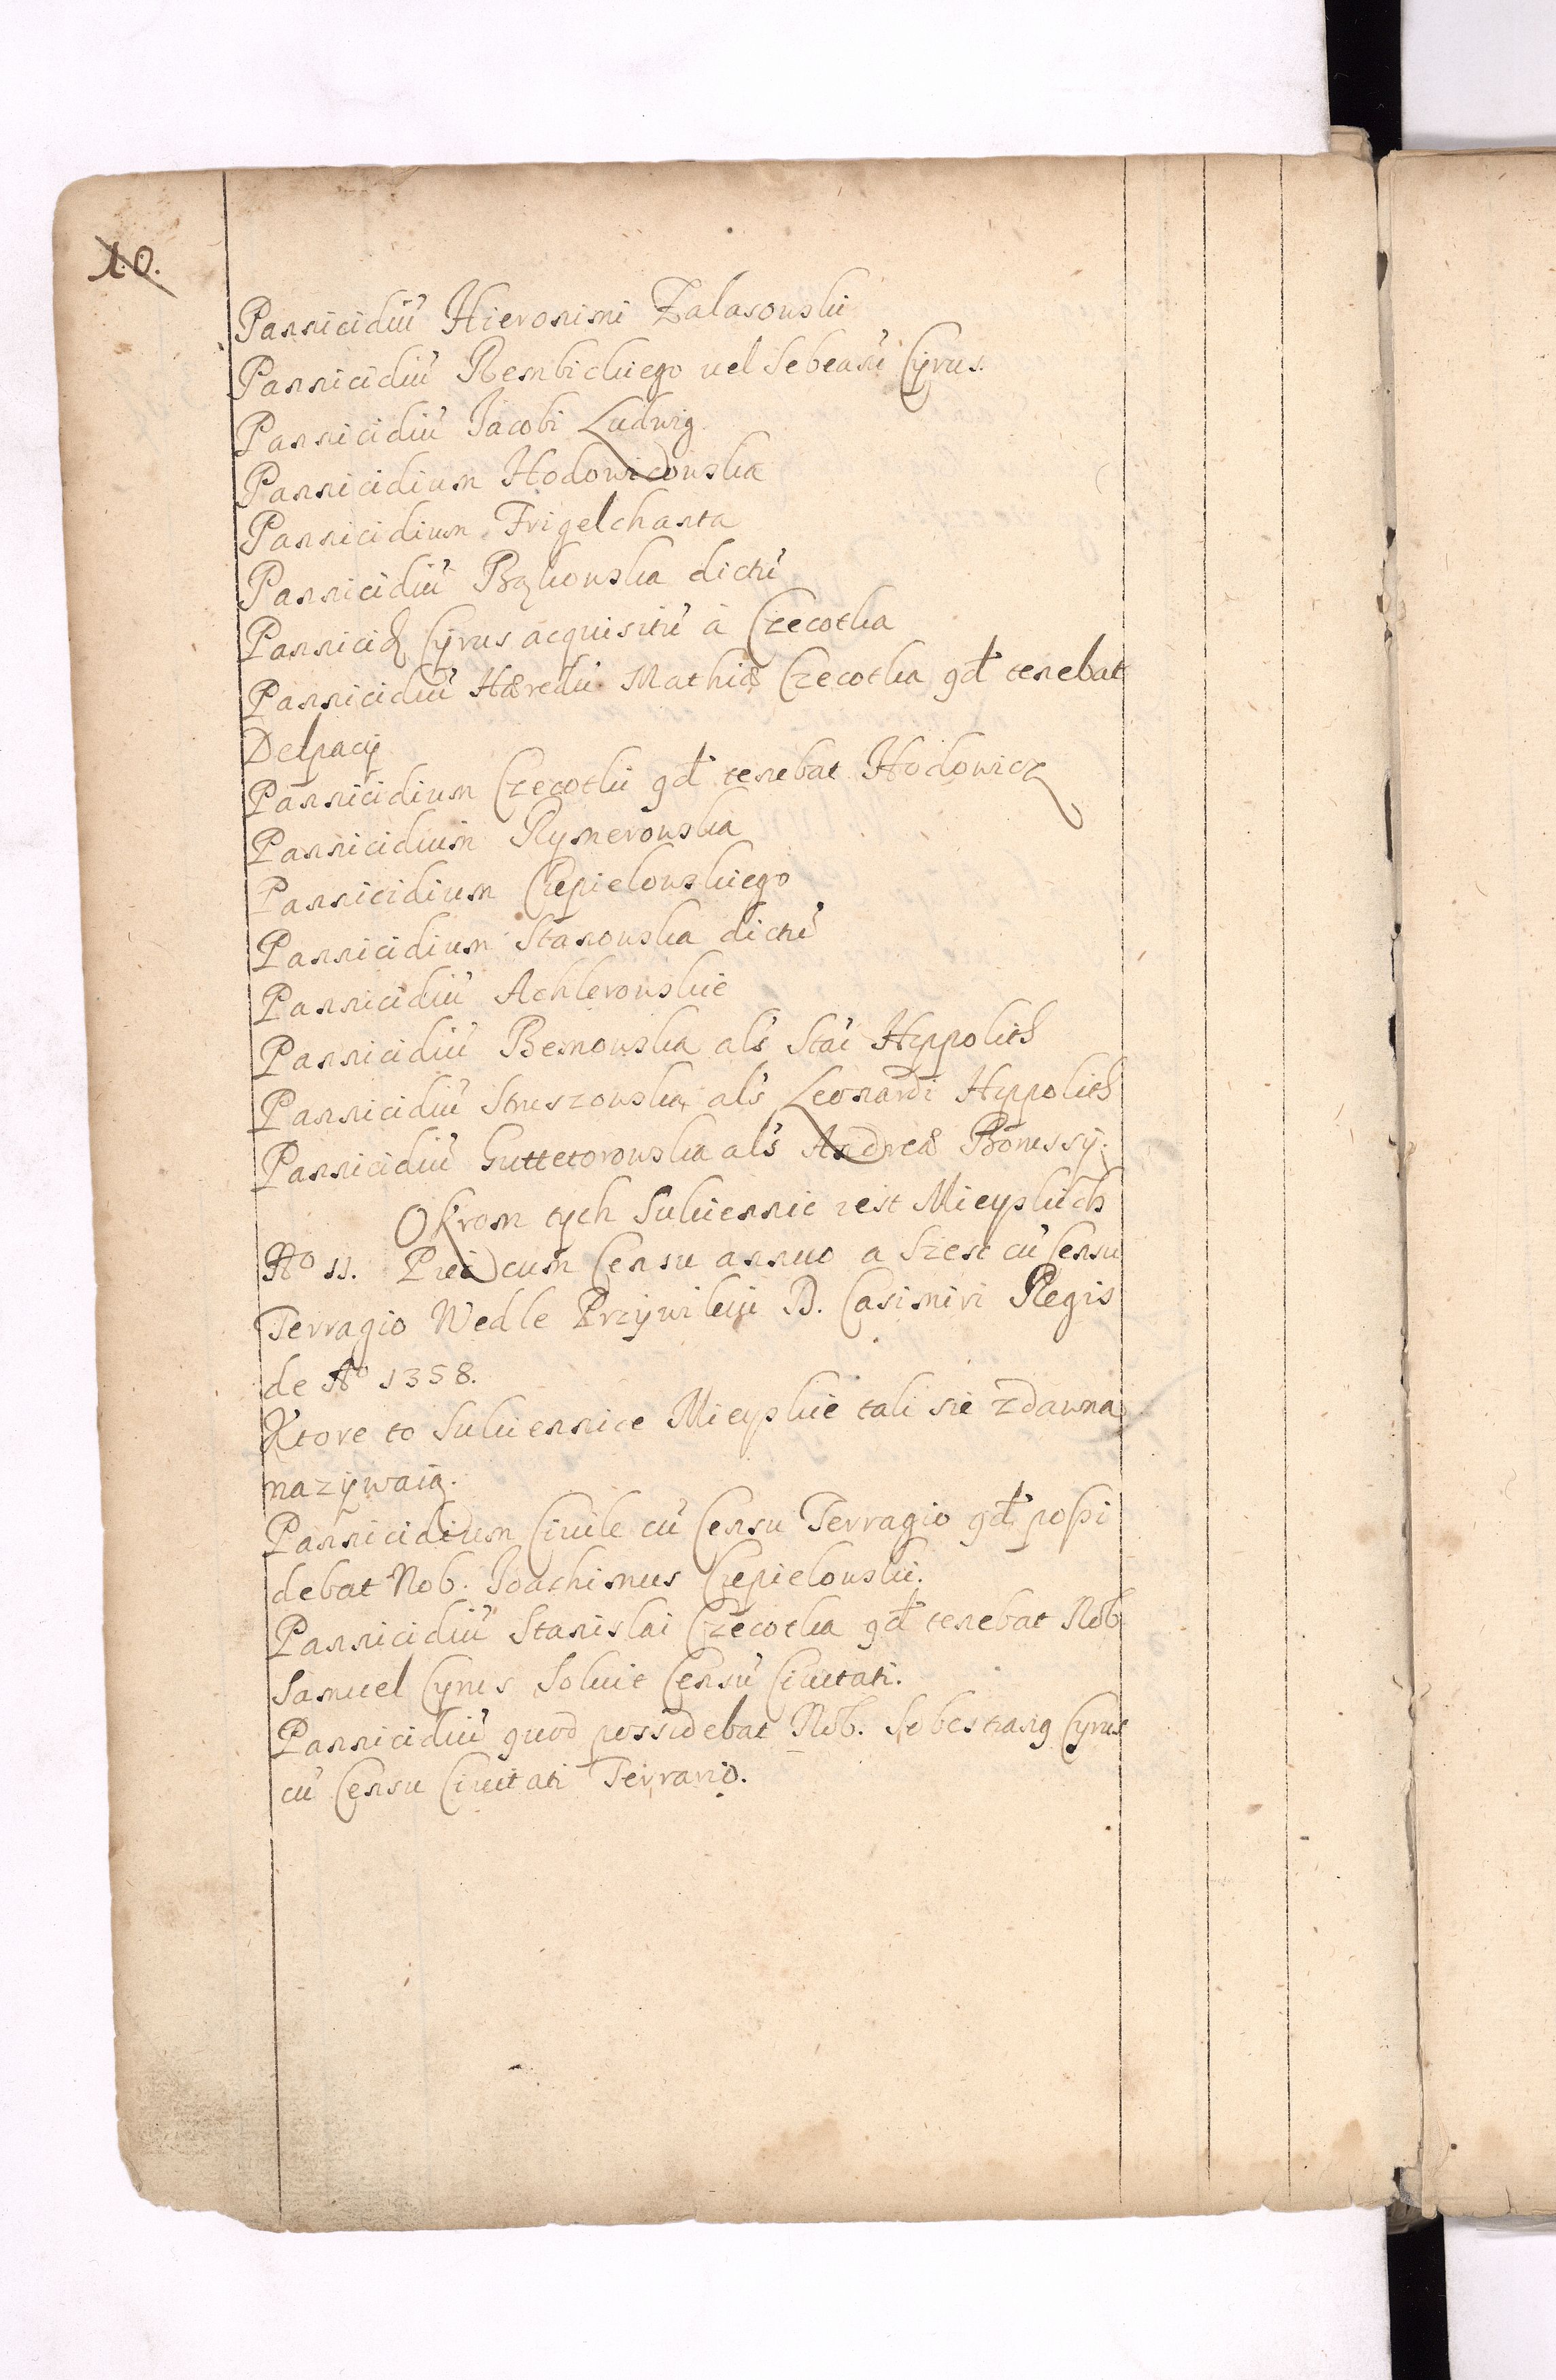 10.
Pannicidiu' Hieronimi Zalasowski
Pannicidiu' Rembickiego vel Sebeani Cyrus.
Pannicidiu' Jacobi Ludwig
Pannicidium Hodowicowska
Pannicidium Frigelchanta
Pannicidiu' Bąkowska dictu'
Pannicid Cyrus acquisitu' à Czecotka
Pannicidiu' Hæredu' Mathiæ Czecotka qd tenebat
Delpacij
Pannicidium Czecotki qd tenebat Hodowicz
Pannicidium Rymerowska
Pannicidium Czepielowskiego
Pannicidium Stanowska dictu'
Pannicidiu' Achlerowskie
Pannicidiu' Bemowska als Stai Hippolit
Pannicidiu' Struszowska als Leonardi Hippolit
Pannicidiu' Guttetorowska als Andreæ Bonussij.
Okrom tych Sukiennic iest Mieyskich
No 11. Pięć cum Censu annuo a Szesc cu' Censu
Terragio Wedle Przywileiu D. Casimiri Regis
de Ao 1358.
Ktore to Sukiennice Mieyskie tak sie zdawna
nazywaią.
Pannicidium Ciuile cu' Censu Terragio qd possi
debat Nob. Joachimus Czepielowski.
Pannicidiu' Stanislai Czecotka qd tenebat Nob
Samuel Cyrus Soluit Censu' Ciuitati.
Pannicidiu' quod possidebat Nob. Sebestian9 Cyrus
cu' Censu Ciuitati Terrario.